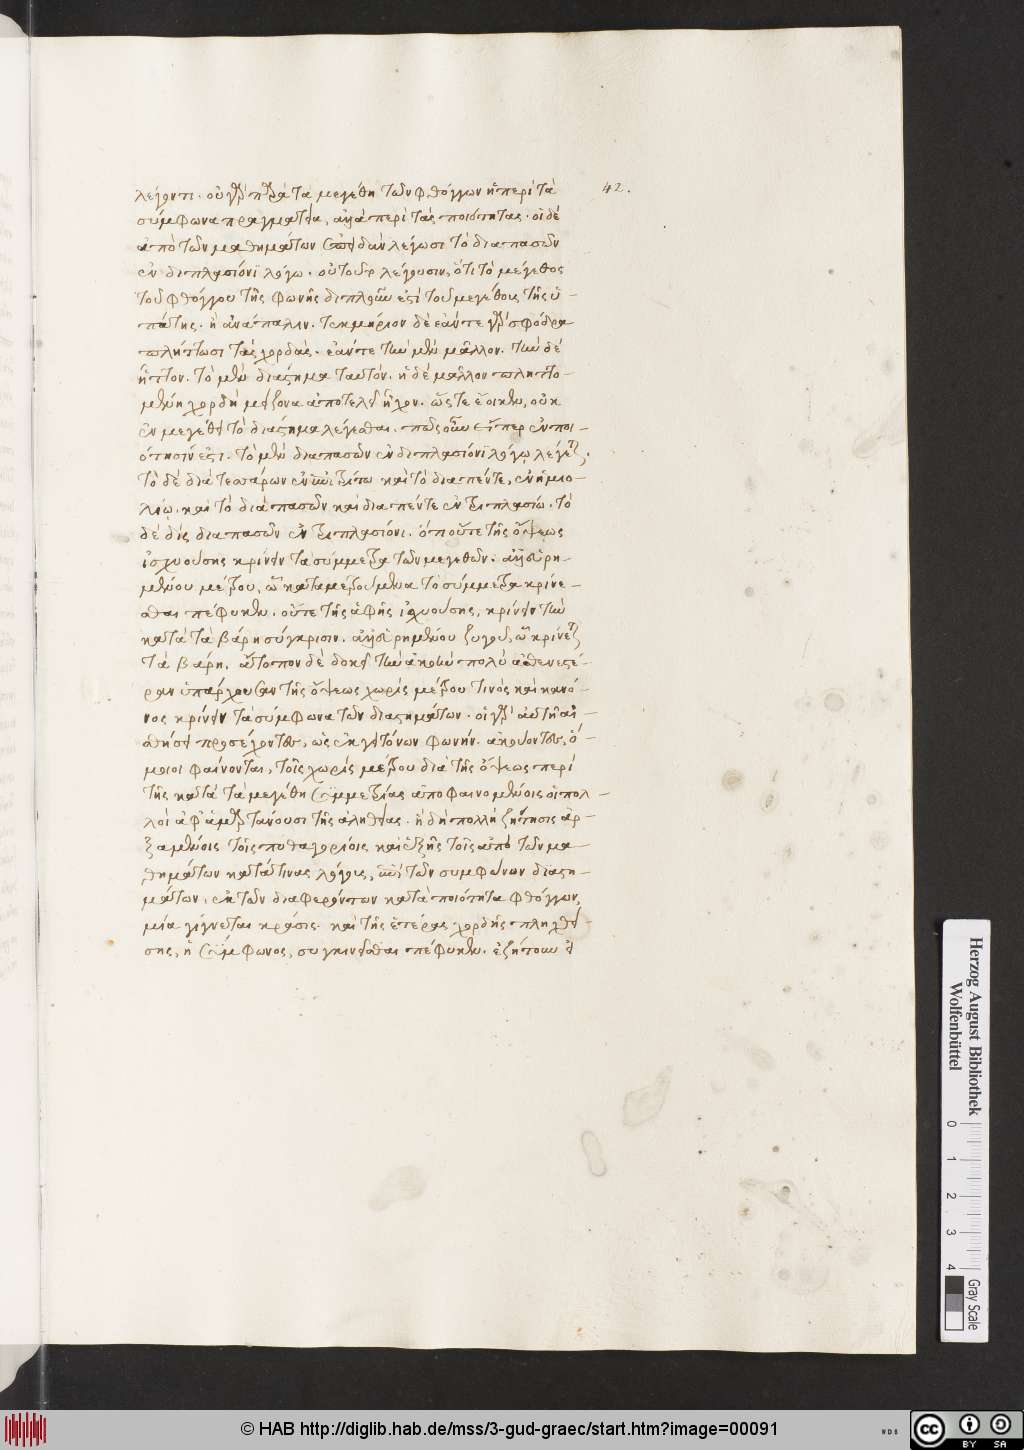 λέγοντι. οὐ γὰρ πρὸς τὰ μεγέθη τῶν φθόγγων ἡ περὶ τὰ 42.
σύμφωνα πραγματεία, ἀλλὰ περὶ τὰς ποιότητας. οἱ δὲ
ἀπὸ τῶν μαθημάτων λέγωσι τὸ διαπασῶν
ἐν διπλασίονι λόγω. οὐ τοῦτο λέγουσιν, ὅτι τὸ μέγεθος
τοῦ φθόγγου τῆς φωνῆς διπλοῦν ἐστὶ τοῦ μεγέθους τῆς ὑ-
πάτης. ἢ ἀνάπαλιν. τεκμήριον δὲ ἐάν τε γὰρ σφόδρα
πλήττωσι τὰς χορδάς. ἐάν τε τὴν μὲν μᾶλλον. τὴν δὲ
ἧττον. τὸ μὲν διάστημα ταυτόν. ἡ δὲ μᾶλλον πληττο-
μένη χορδὴ μείζονα ἀποτελεῖ ἦχον. ὥστε ἔοικεν, οὐκ
ἐν μεγέθει τὸ διάστημα λέγεσθαι. πῶς οὖν εἴπερ ἐν ποι-
ότησίν ἐστι. τὸ μὲν διαπασῶν ἐν διπλασίονι λόγω λέγεται.
τὸ δὲ διὰ τεσσάρων ἐν ἐπιτρίτω καὶ τὸ διαπέντε, ἐν ἡμιο-
λίω. καὶ τὸ διαπασῶν καὶ διαπέντε ἐν τριπλασίω. τὸ
δὲ δὶς διαπασῶν ἐν τριπλασίονι. ὁποῦτε τῆς ὄψεως
ἰσχυούσης κρίνειν τὰ σύμμετρα τῶν μεγεθῶν. ἀνηρη-
μένου μέτρου, ὧ καταμετρούμενα τὰ σύμμετρα κρίνε-
σθαι πέφυκεν. οὔτε τῆς ἁφῆς ἰσχυούσης, κρίνειν τὴν
κατὰ τὰ βάρη σύγκρισιν. ἀνηρημένου ζυγοῦ, ὧ κρίνεται
τὰ βάρη. ἄτοπον δὲ δοκεῖ τὴν ἀκοὴν πολὺ ἀσθενεστέ-
ραν ὑπάρχουσαν τῆς ὄψεως χωρὶς μέτρου τινὸς καὶ κανό-
νος κρίνειν τὰ σύμφωνα τῶν διαστημάτων. οἱ γὰρ αὐτῆ αἰ-
σθήσει προσέχοντες, ὡς ἐκ γειτόνων φωνήν. ἀκούοντες, ὅ-
μοιοι φαίνονται, τοῖς χωρὶς μέτρου διὰ τῆς ὄψεως περὶ
τῆς κατὰ τὰ μεγέθη συμμετρίας ἀποφαινομένοις οἱ πολ-
λοὶ ἀφαμαρτάνουσι τῆς ἀληθείας. ἡ δὴ πολλὴ ζήτησις ἀρ-
ξαμένοις τοῖς πυθαγορίοις καὶ ἑξῆς τοῖς ἀπὸ τῶν μα-
θημάτων κατὰ τίνας λόγους, ἐπὶ τῶν συμφώνων διαστη-
μάτων, ἐκ τῶν διαφερόντων κατὰ ποιότητα φθόγγων,
μία γίγνεται κρᾶσις. καὶ τῆς ἑτέρας χορδῆς πληχθεί-
σης, ἡ σύμφωνος, συγκινεῖσθαι πέφυκεν. ἐζήτουν
Herzog August Bibliothek
Wolfenbüttel
0 1 2 3 4
Gray Scale
© HAB http://diglib.hab.de/mss/3-gud-graec/start.htm?image=00091
cc BY SA